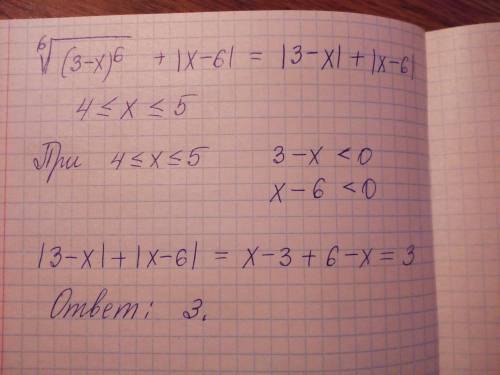 ⁶√(3-x)⁶ + |x-6| = |3-x| + |x-6|
4 ≤ x ≤ 5
При 4 ≤ x ≤ 5 3-x < 0
x - 6 < 0
|3-x| + |x-6| = x-3+6-x = 3
Ответ: 3.